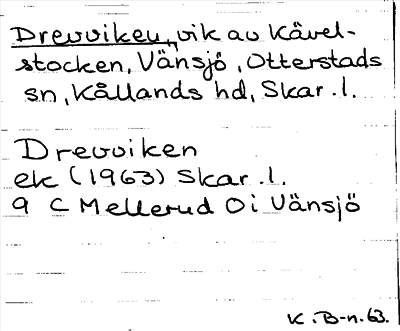 Drevviken, vik av Kåvel-
stocken, Vänsjö, Otterstads
sn, Kållands hd, Skar. l.
Drevviken
ek (1963) Skar. l.
9 C Mellerud Öi Vänsjö
K. B-n. 63.